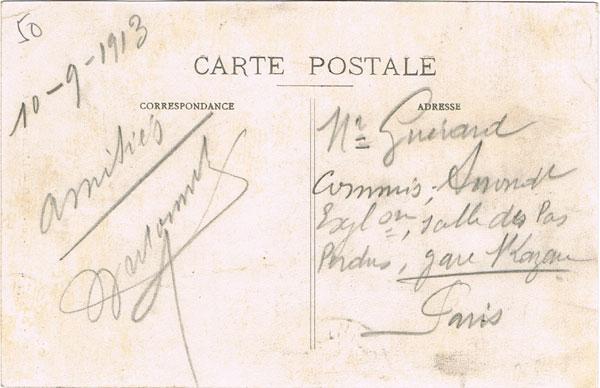 50
10-9-1913
CARTE POSTALE
CORRESPONDANCE
amitiés
ADRESSE
Mr Guérard
Commis,
Expl on, salle des Pas
Perdus, gare
Paris